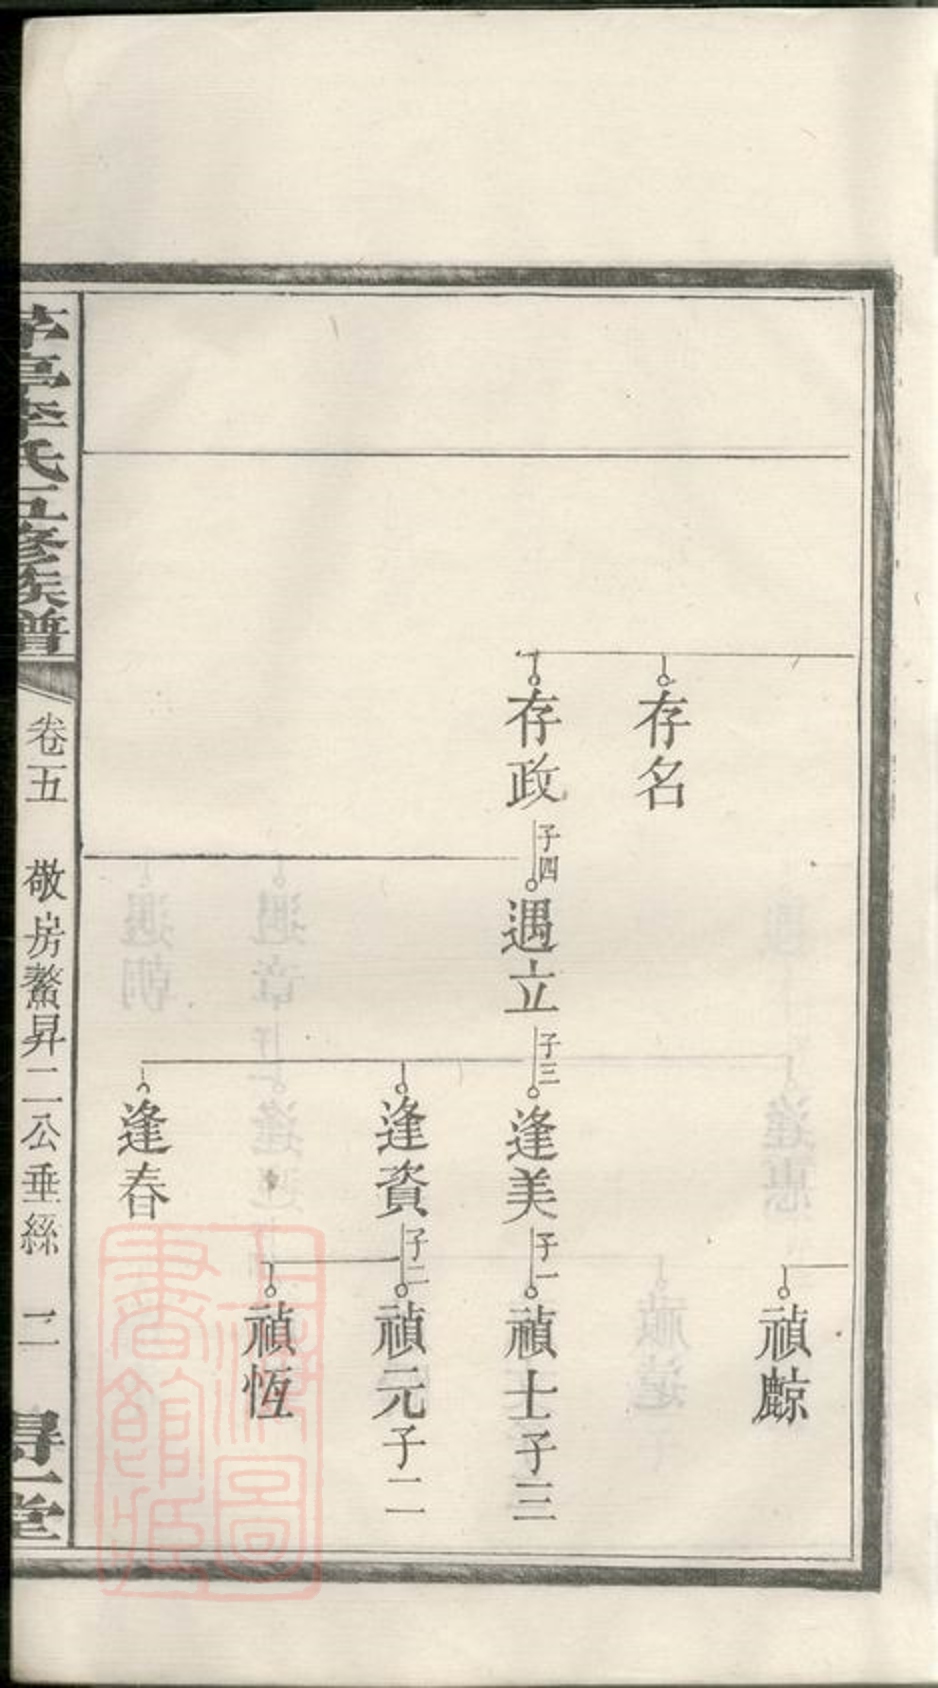 存名
存政
子四
遇立
子三
逢美
子一
禎士子三
逢資
子二
禎元子二
禎恆
逢春
亭李氏五修族譜
卷五
敬房鰲昇二公垂絲
二
得一堂
上海圖書館藏